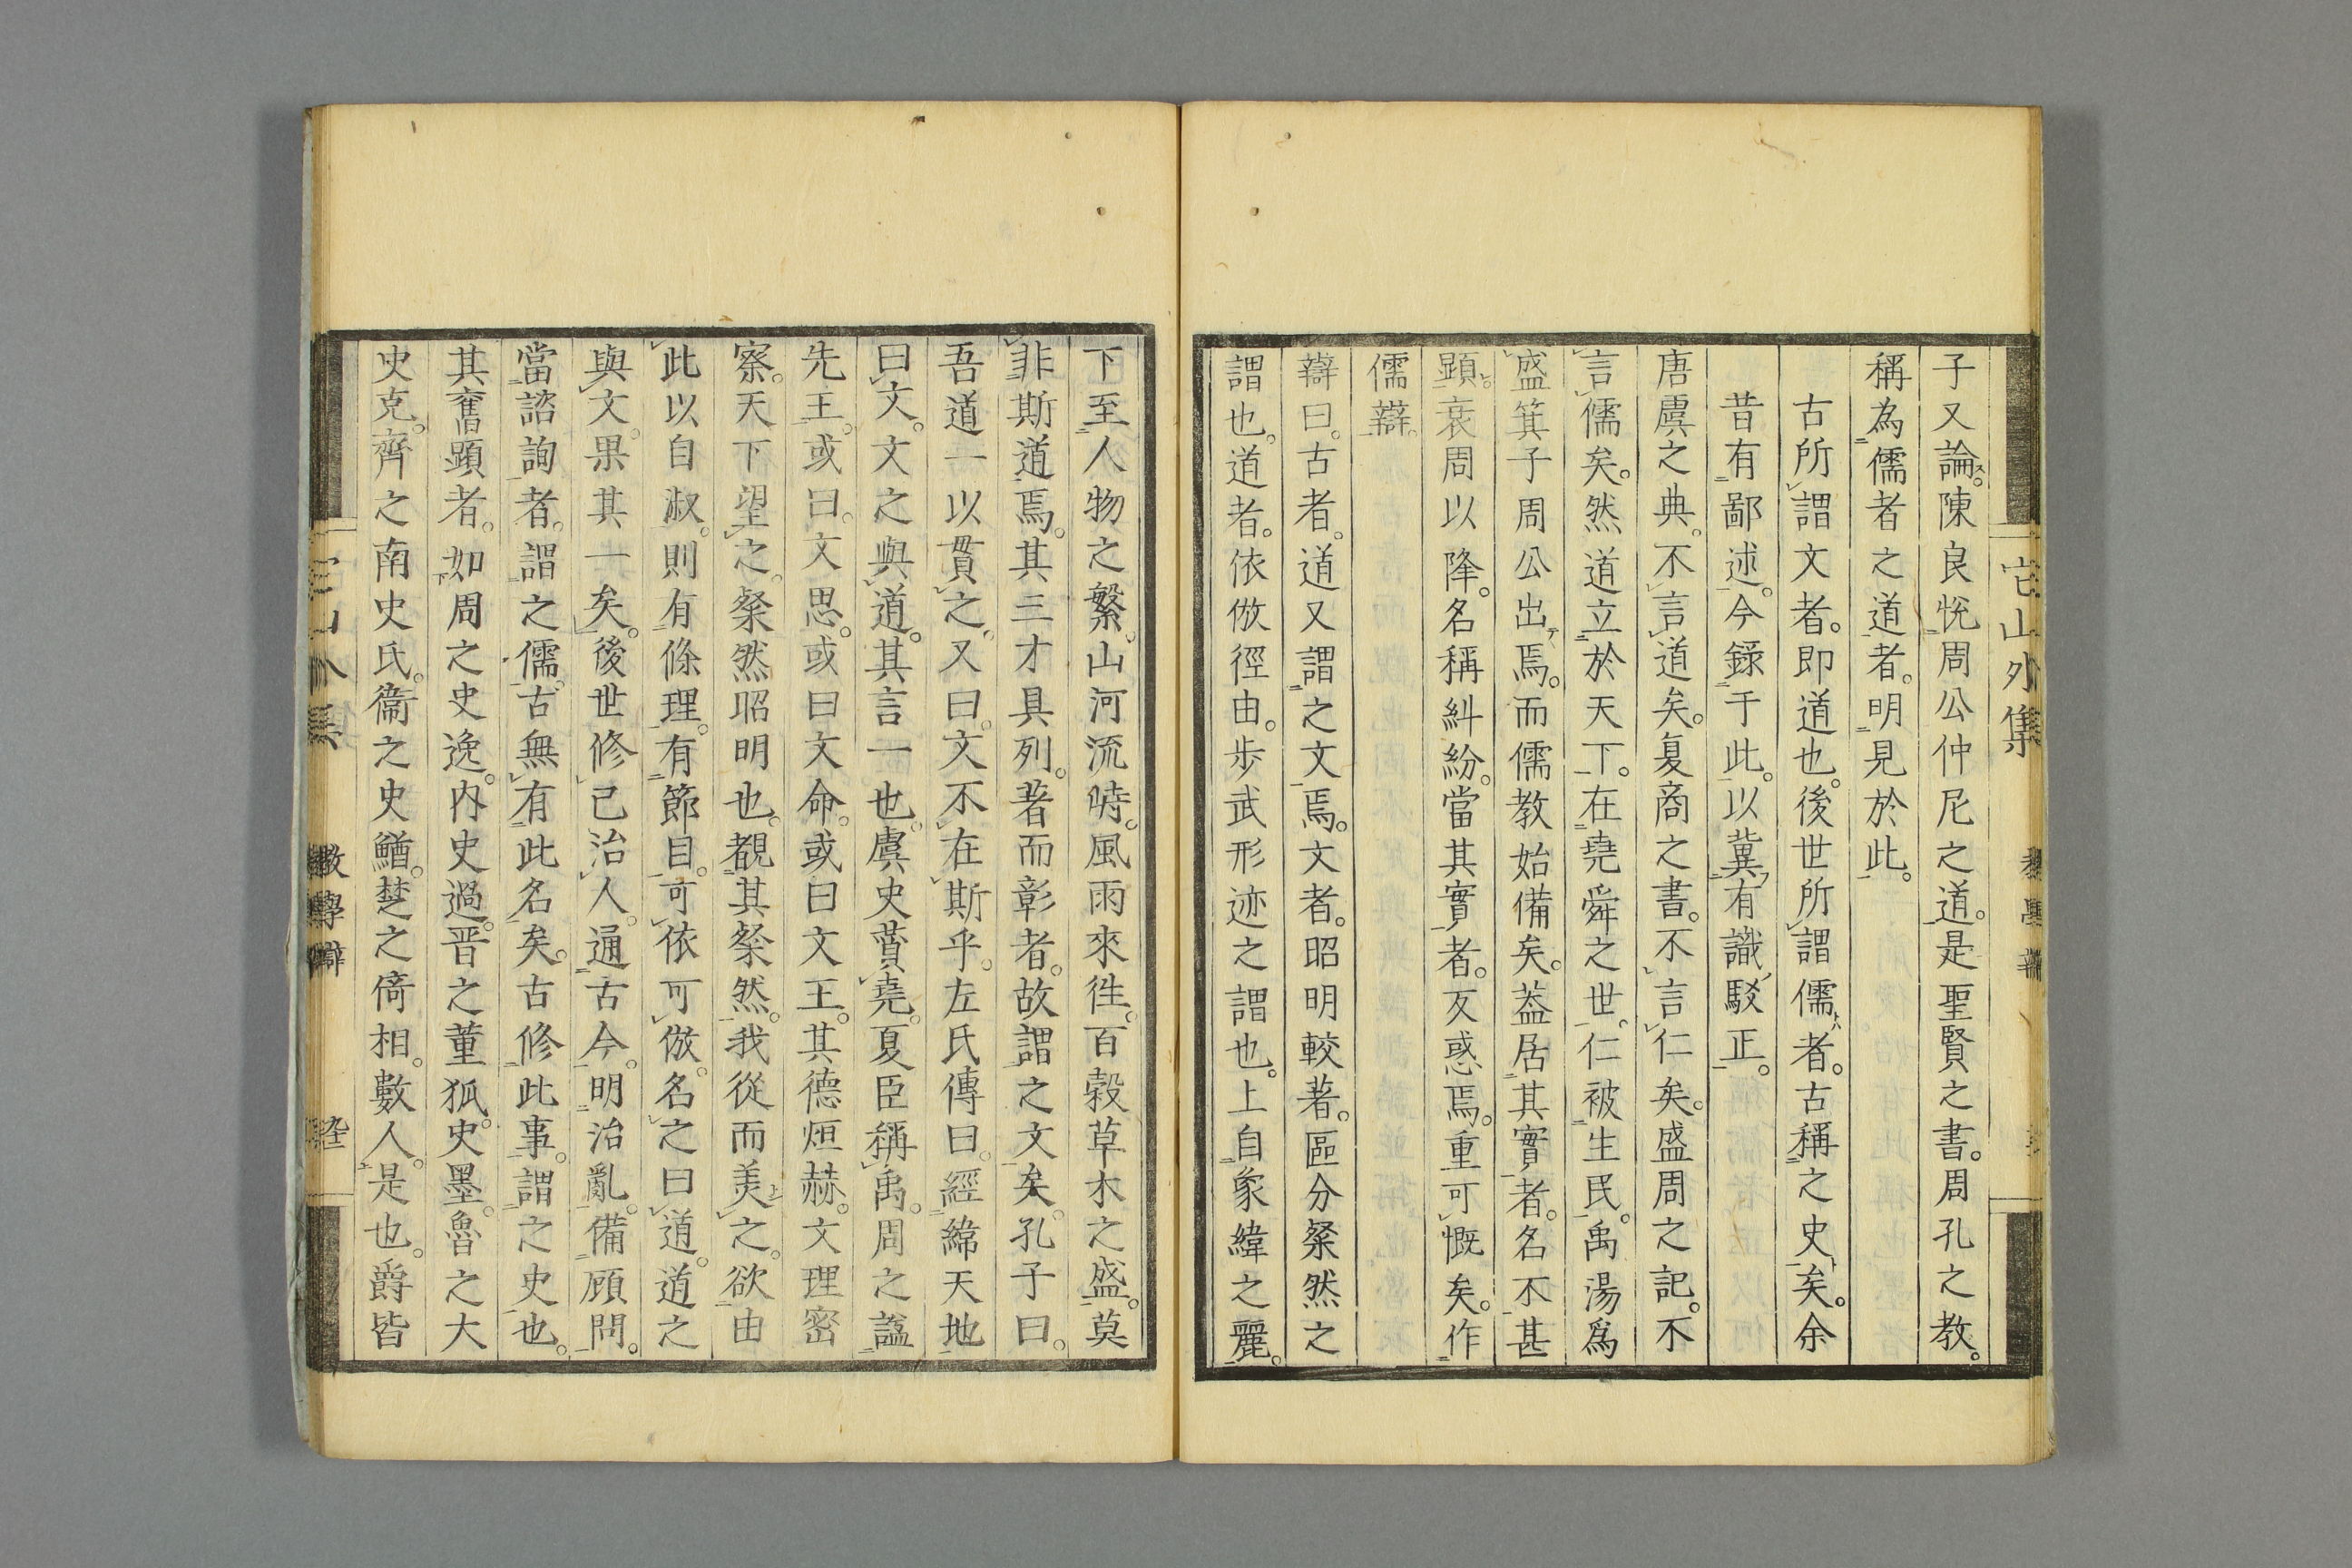 它山外集
子又論。陳良悅周公仲尼之道。是聖賢之書。周孔之教。
稱為儒者之道者。明見於此。
古所謂文者。即道也。後世所謂儒者。古稱之史矣。余
昔有鄙述。今錄于此。以冀有識駁正。
唐虞之典。不言道矣。夏商之書。不言仁矣。盛周之記。不
言儒矣。然道立於天下。在堯舜之世。仁被生民。禹湯爲
盛。箕子周公出焉。而儒教始備矣。蓋居其實者。名不甚
顯。衰周以降。名稱糾紛。當其實者。又惑焉。重可慨矣。作
儒辯。
辯曰。古者。道又謂之文焉。文者。昭明較著。區分粲然之
謂也。道者。依倣徑由。步武形迹之謂也。上自象緯之麗。
下至人物之繁。山河流峙。風雨來往。百穀草木之盛。莫
非斯道焉。其三才具列。著而彰者。故謂之文矣。孔子曰。
吾道一以貫之。又曰。文不在斯乎。左氏傳曰。經緯天地
曰文。文之與道。其言一也。虞史贊堯。夏臣稱禹。周之諡
先王。或曰。文思。或曰文命。或曰文王。其德烜赫。文理密
察。天下望之。粲然昭明也。覩其粲然。我從而美之。欲由
此以自淑。則有條理。有節目。可依可倣。名之曰道。道之
與文。果其一矣。後世修己治人。通古今。明治亂。備顧問。
當諮詢者。謂之儒。古無有此名矣。古修此事。謂之史也。
其奮顯者。如周之史逸。內史過。晋之董狐。史墨。魯之大
史克。齊之南史氏。衞之史鰌。楚之倚相。數人。是也。爵皆
教學辯